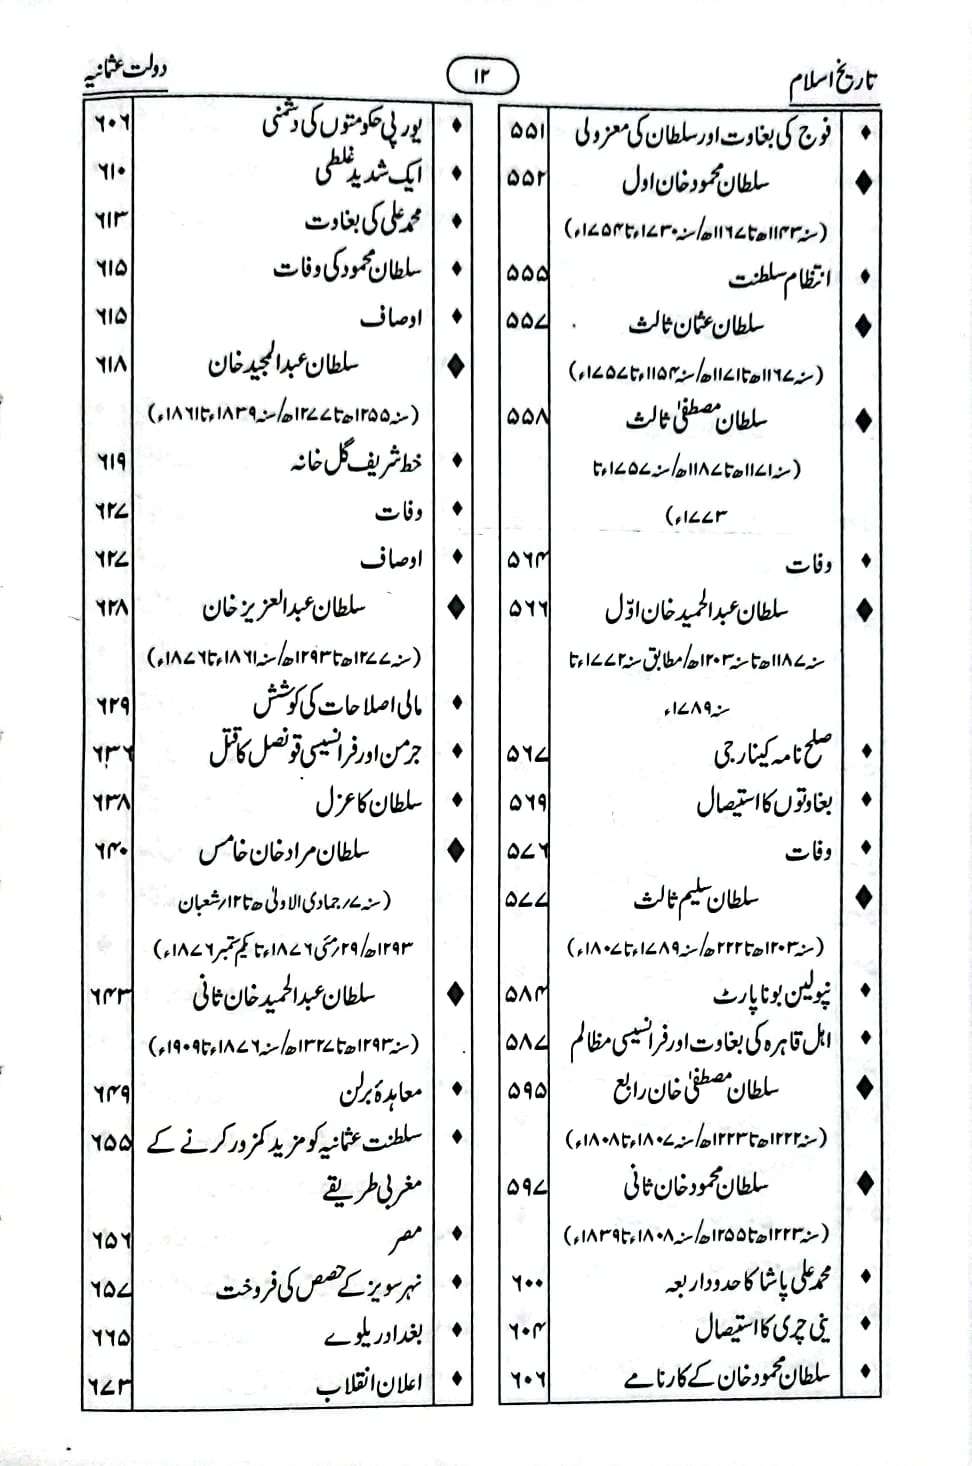 تاریخ اسلام ۱۲ دولت عثمانیہ
♦ فوج کی بغاوت اور سلطان کی معزولی ۵۵۱
◆ سلطان محمود خان اول ۵۵۲
(سنہ ۱۱۴۳ھ تا ۱۱۶۷ھ/سنہ ۱۷۳۰ء تا ۱۷۵۴ء)
♦ انتظام سلطنت ۵۵۵
◆ سلطان عثمان ثالث ۵۵۷
(سنہ ۱۱۶۷ھ تا ۱۱۷۱ھ/سنہ ۱۱۵۴ء تا ۱۷۵۷ء)
◆ سلطان مصطفیٰ ثالث ۵۵۸
(سنہ ۱۱۷۱ھ تا ۱۱۸۷ھ/سنہ ۱۷۵۷ء تا
۱۷۷۳ء)
♦ وفات ۵۶۴
◆ سلطان عبدالحمید خان اوّل ۵۶۶
سنہ ۱۱۸۷ھ تا سنہ ۱۲۰۳ھ/مطابق سنہ ۱۷۷۲ء تا
سنہ ۱۷۸۹ء
♦ صلح نامہ کینارجی ۵۶۷
♦ بغاوتوں کا استیصال ۵۶۹
♦ وفات ۵۷۶
◆ سلطان سلیم ثالث ۵۷۷
(سنہ ۱۲۰۳ھ تا ۲۲۲ھ/سنہ ۱۷۸۹ء تا ۱۸۰۷ء)
♦ نپولین بونا پارٹ ۵۸۴
♦ اہل قاہرہ کی بغاوت اور فرانسیسی مظالم ۵۸۷
◆ سلطان مصطفیٰ خان رابع ۵۹۵
(سنہ ۱۲۲۲ھ تا ۱۲۲۳ھ/سنہ ۱۸۰۷ء تا ۱۸۰۸ء)
◆ سلطان محمود خان ثانی ۵۹۷
(سنہ ۱۲۲۳ھ تا ۱۲۵۵ھ/سنہ ۱۸۰۸ء تا ۱۸۳۹ء)
♦ محمد علی پاشا کا حدود اربعہ ۶۰۰
♦ ینی چری کا استیصال ۶۰۴
♦ سلطان محمود خان کے کارنامے ۶۰۶
♦ یورپی حکومتوں کی دشمنی ۶۰۶
♦ ایک شدید غلطی ۶۱۰
♦ محمد علی کی بغاوت ۶۱۳
♦ سلطان محمود کی وفات ۶۱۵
♦ اوصاف ۶۱۵
◆ سلطان عبدالمجید خان ۶۱۸
(سنہ ۱۲۵۵ھ تا ۱۲۷۷ھ/سنہ ۱۸۳۹ء تا ۱۸۶۱ء)
♦ خط شریف گل خانہ ۶۱۹
♦ وفات ۶۲۷
♦ اوصاف ۶۲۷
◆ سلطان عبدالعزیز خان ۶۲۸
(سنہ ۱۲۷۷ھ تا ۱۲۹۳ھ/سنہ ۱۸۶۱ء تا ۱۸۷۶ء)
♦ مالی اصلاحات کی کوشش ۶۲۹
♦ جرمن اور فرانسیسی قونصل کا قتل ۶۳۶
♦ سلطان کا عزل ۶۳۸
◆ سلطان مراد خان خامس ۶۴۰
(سنہ ۷/جمادی الاولیٰ ھ تا ۱۲/شعبان
۱۲۹۳ھ/۲۹ مئی ۱۸۷۶ء تا یکم ستمبر ۱۸۷۶ء)
◆ سلطان عبدالحمید خان ثانی ۶۴۳
(سنہ ۱۲۹۳ھ تا ۱۳۲۷ھ/سنہ ۱۸۷۶ء تا ۱۹۰۹ء)
♦ معاہدۂ برلن ۶۴۹
♦ سلطنت عثمانیہ کو مزید کمزور کرنے کے ۶۵۵
مغربی طریقے
♦ مصر ۶۵۶
♦ نہر سویز کے حصص کی فروخت ۶۵۷
♦ بغداد ریلوے ۶۶۵
♦ اعلان انقلاب ۶۷۳